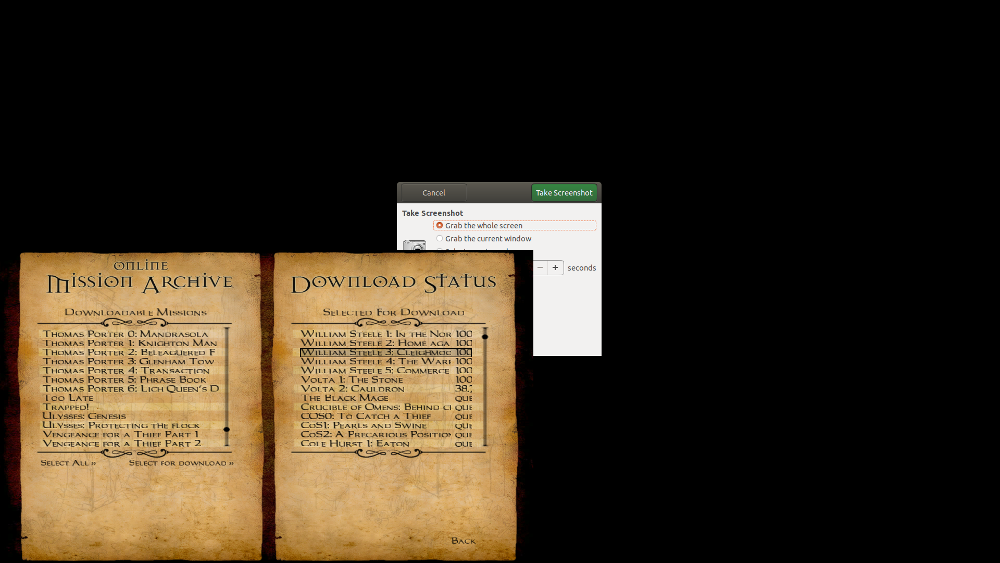 Cancel
Take Screenshot
Take Screenshot
Grab the whole screen
Grab the current window
- + seconds
Online
Mission Archive
Downloadable Missions
Thomas Porter 0: Mandrasola
Thomas Porter 1: Knighton Man
Thomas Porter 2: Beleaguered F
Thomas Porter 3: Glenham Tow
Thomas Porter 4: Transaction
Thomas Porter 5: Phrase Book
Thomas Porter 6: Lich Queen's D
Too Late
Trapped!
Ulysses: Genesis
Ulysses: Protecting the flock
Vengeance for a Thief Part 1
Vengeance for a Thief Part 2
Select All »
Select for download »
Download Status
Selected For Download
William Steele 1: In the Nor 100
William Steele 2: Home Aga 100
William Steele 3: Cleighmoc 100
William Steele 4: The Wari 100
William Steele 5: Commerce 100
Volta 1: The Stone 100
Volta 2: Cauldron 38,
The Black Mage QUE
Crucible of Omens: Behind Cl QUE
COS0: To Catch a Thief QUE
CoS1: Pearls and Swine QUE
CoS2: A Precarious Positio QUE
Cole Hurst 1: Eaton QUE
Back